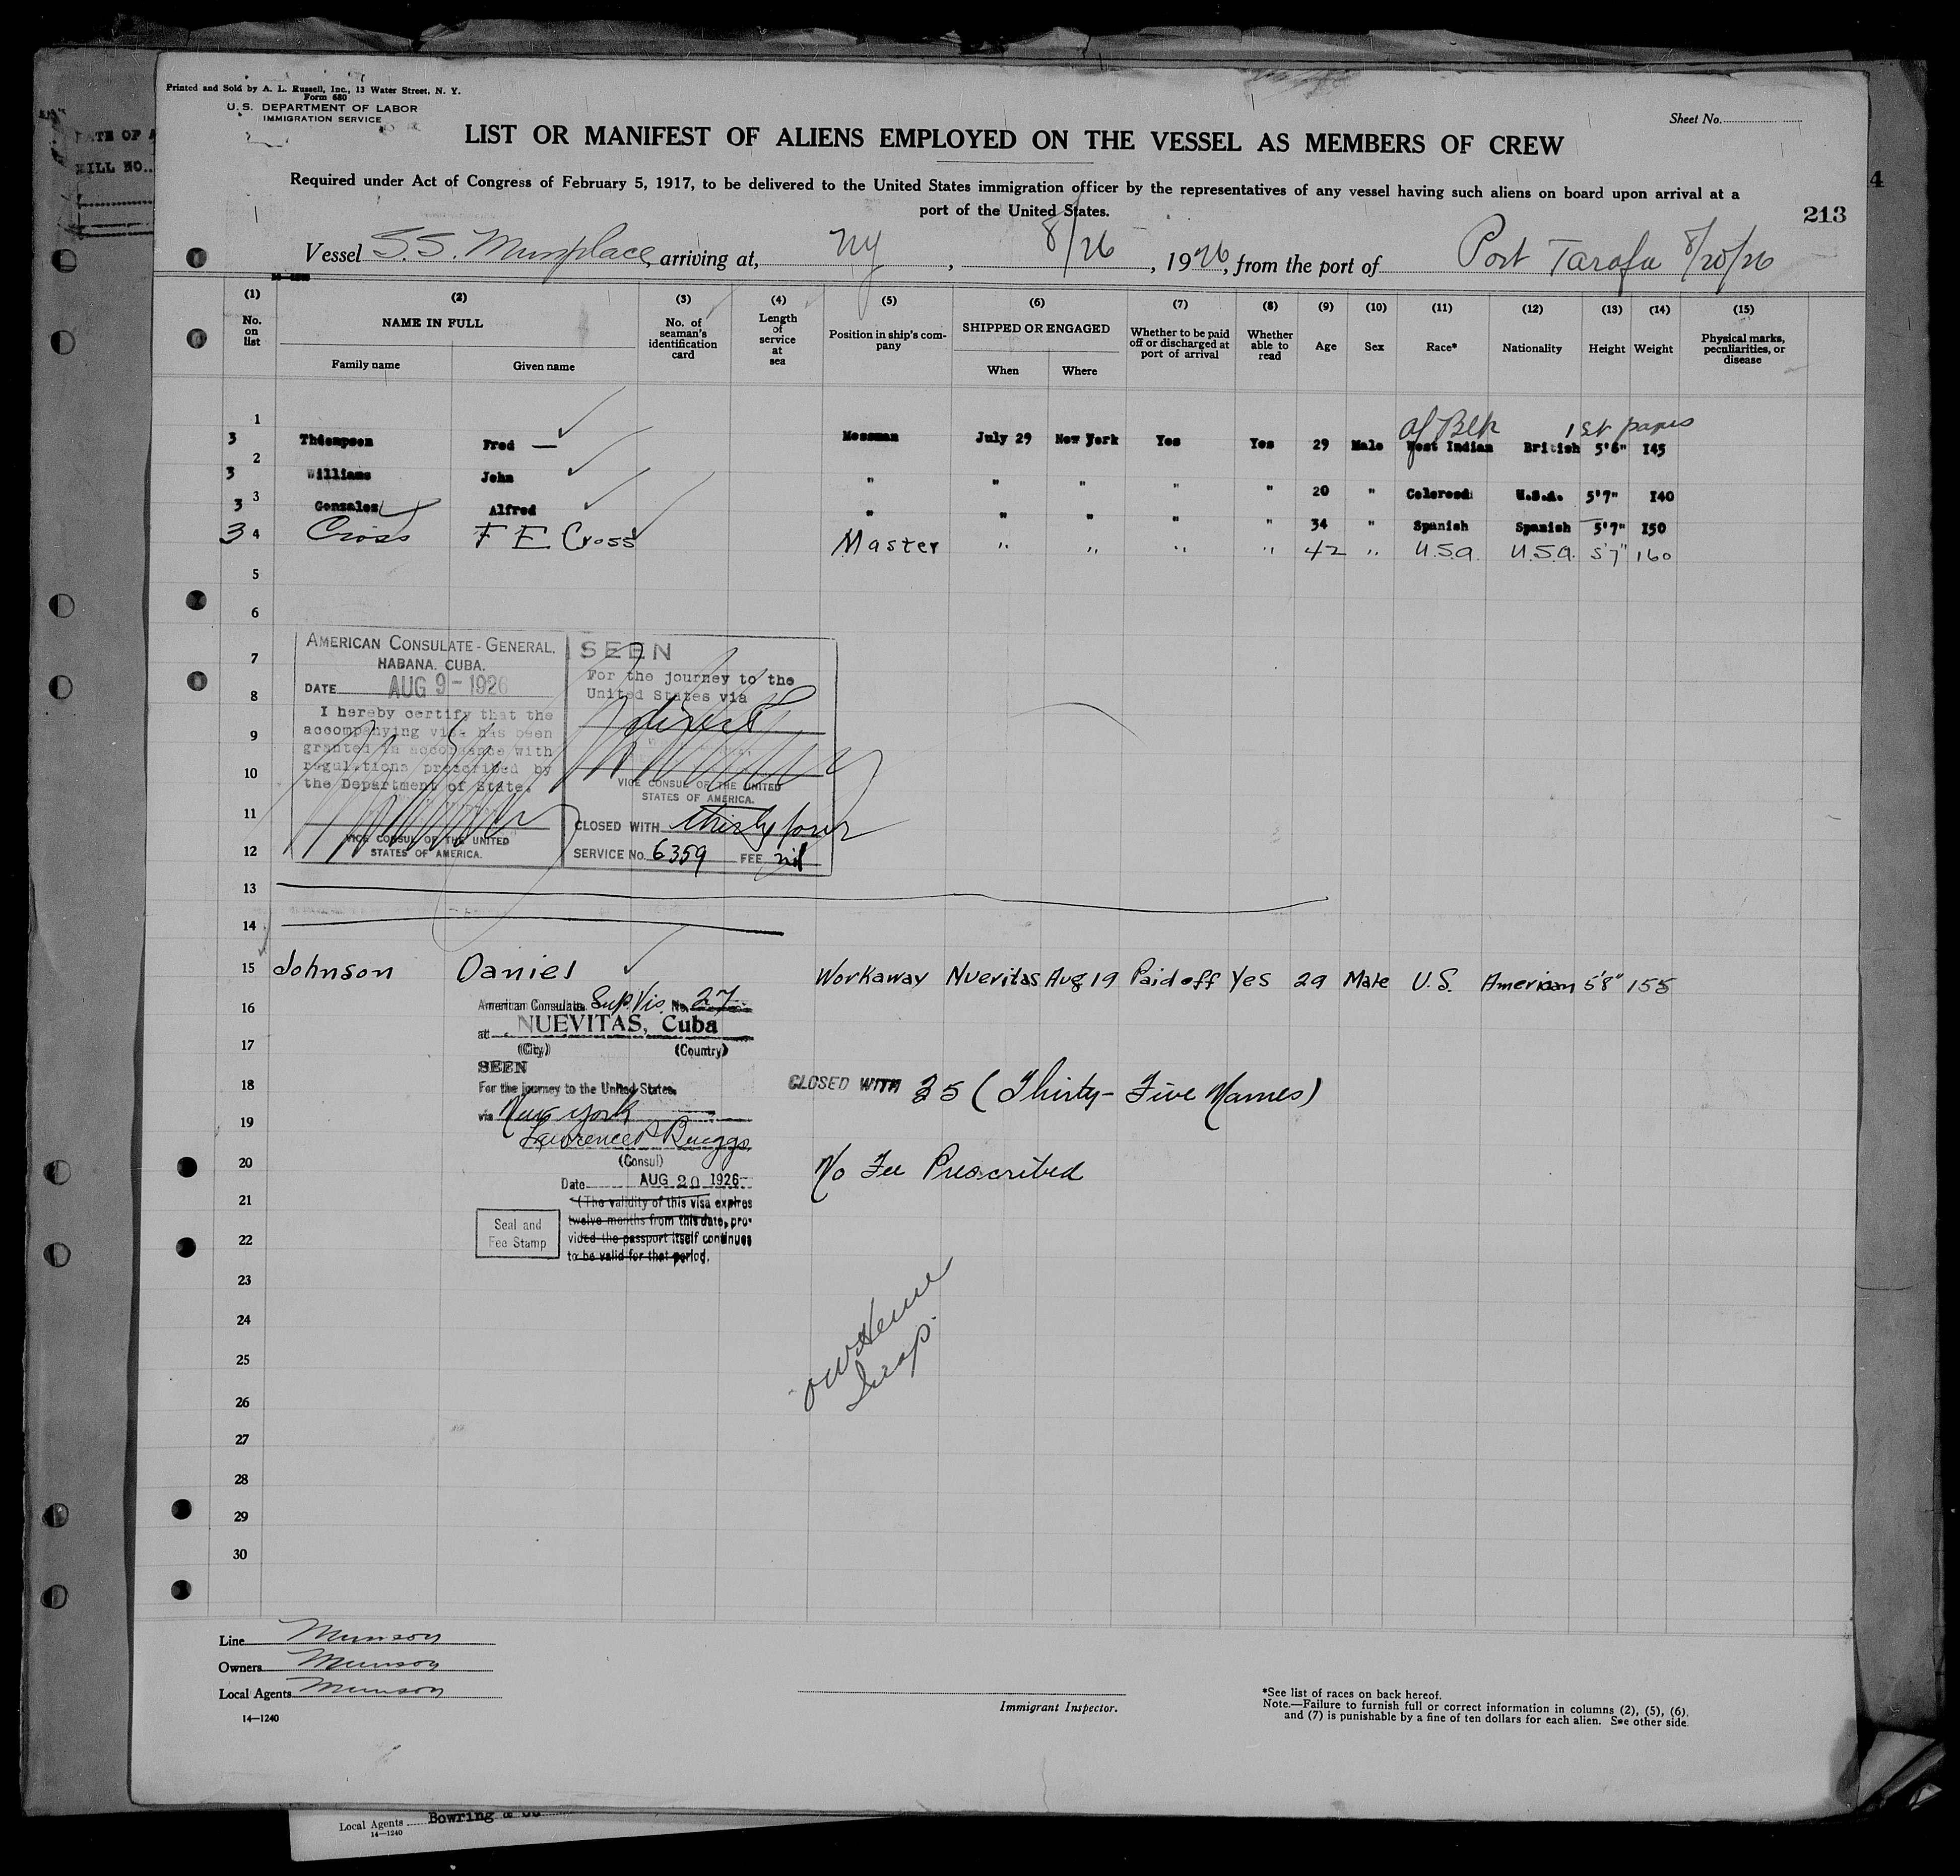 Printed and Sold by A. L. Russell, Inc., 13 Water Street, N. Y.
Form 680
U. S. DEPARTMENT OF LABOR
IMMIGRATION SERVICE
Sheet No.
LIST OR MANIFEST OF ALIENS EMPLOYED ON THE VESSEL AS MEMBERS OF CREW
Required under Act of Congress of February 5, 1917, to be delivered to the United States immigration officer by the representatives of any vessel having such aliens on board upon arrival at a
port of the United States.
213
4
Vessel S.S. Munplace, arriving at, NY, 8/26, 1926, from the port of Port Tarafa 8/20/26
(1) (2) (3) (4) (5) (6) (7) (8) (9) (10) (11) (12) (13) (14) (15)
No. on list NAME IN FULL No. of seaman's identification card Length of service at sea Position in ship's company SHIPPED OR ENGAGED Whether to be paid off or discharged at port of arrival Whether able to read Age Sex Race* Nationality Height Weight Physical marks, peculiarities, or disease
Family name Given name When Where
Af Blk 1st papers
3 1 Thompson Fred — Messman July 29 New York Yes Yes 29 Male West Indian British 5'6" 145
3 2 Williams John " " " " " 20 " Colored U.S.A. 5'7" 140
3 3 Gonzales Alfred " " " " " 34 " Spanish Spanish 5'7" 150
3 4 Cross F E Cross Master " " " " 42 " U.S.A. U.S.A. 5'7" 160
5
6
7
8
9
10
11
12
AMERICAN CONSULATE-GENERAL,
HABANA. CUBA.
DATE AUG 9-1926
I hereby certify that the
accompanying visa has been
granted in accordance with
regulations prescribed by
the Department of State.
VICE CONSUL OF THE UNITED
STATES OF AMERICA.
SEEN
For the journey to the
United States via
direct
VICE CONSUL OF THE UNITED
STATES OF AMERICA.
CLOSED WITH thirty four
SERVICE No. 6359 FEE nil
13
14
15 Johnson Daniel Workaway Nueritas Aug 19 Paid off Yes 29 Male U.S. American 5'8" 155
16
17
18
19
20
21
22
American Consulate Sup. Vis. No. 27
at NUEVITAS, Cuba
(City) (Country)
SEEN
For the journey to the United States.
via New York
Lawrence P Briggs
(Consul)
Date AUG 20 1926
(The validity of this visa expires
twelve months from this date, pro-
vided the passport itself continues
to be valid for that period.
Seal and
Fee Stamp
CLOSED WITH 35 (Thirty-Five Names)
No Fee Prescribed
23
24
25
26
27
28
29
30
Insp.
Line Munson
Owners Munson
Local Agents Munson
14—1240
Immigrant Inspector.
*See list of races on back hereof.
Note.—Failure to furnish full or correct information in columns (2), (5), (6),
and (7) is punishable by a fine of ten dollars for each alien. See other side.
Local Agents Bowring & Co
14—1240